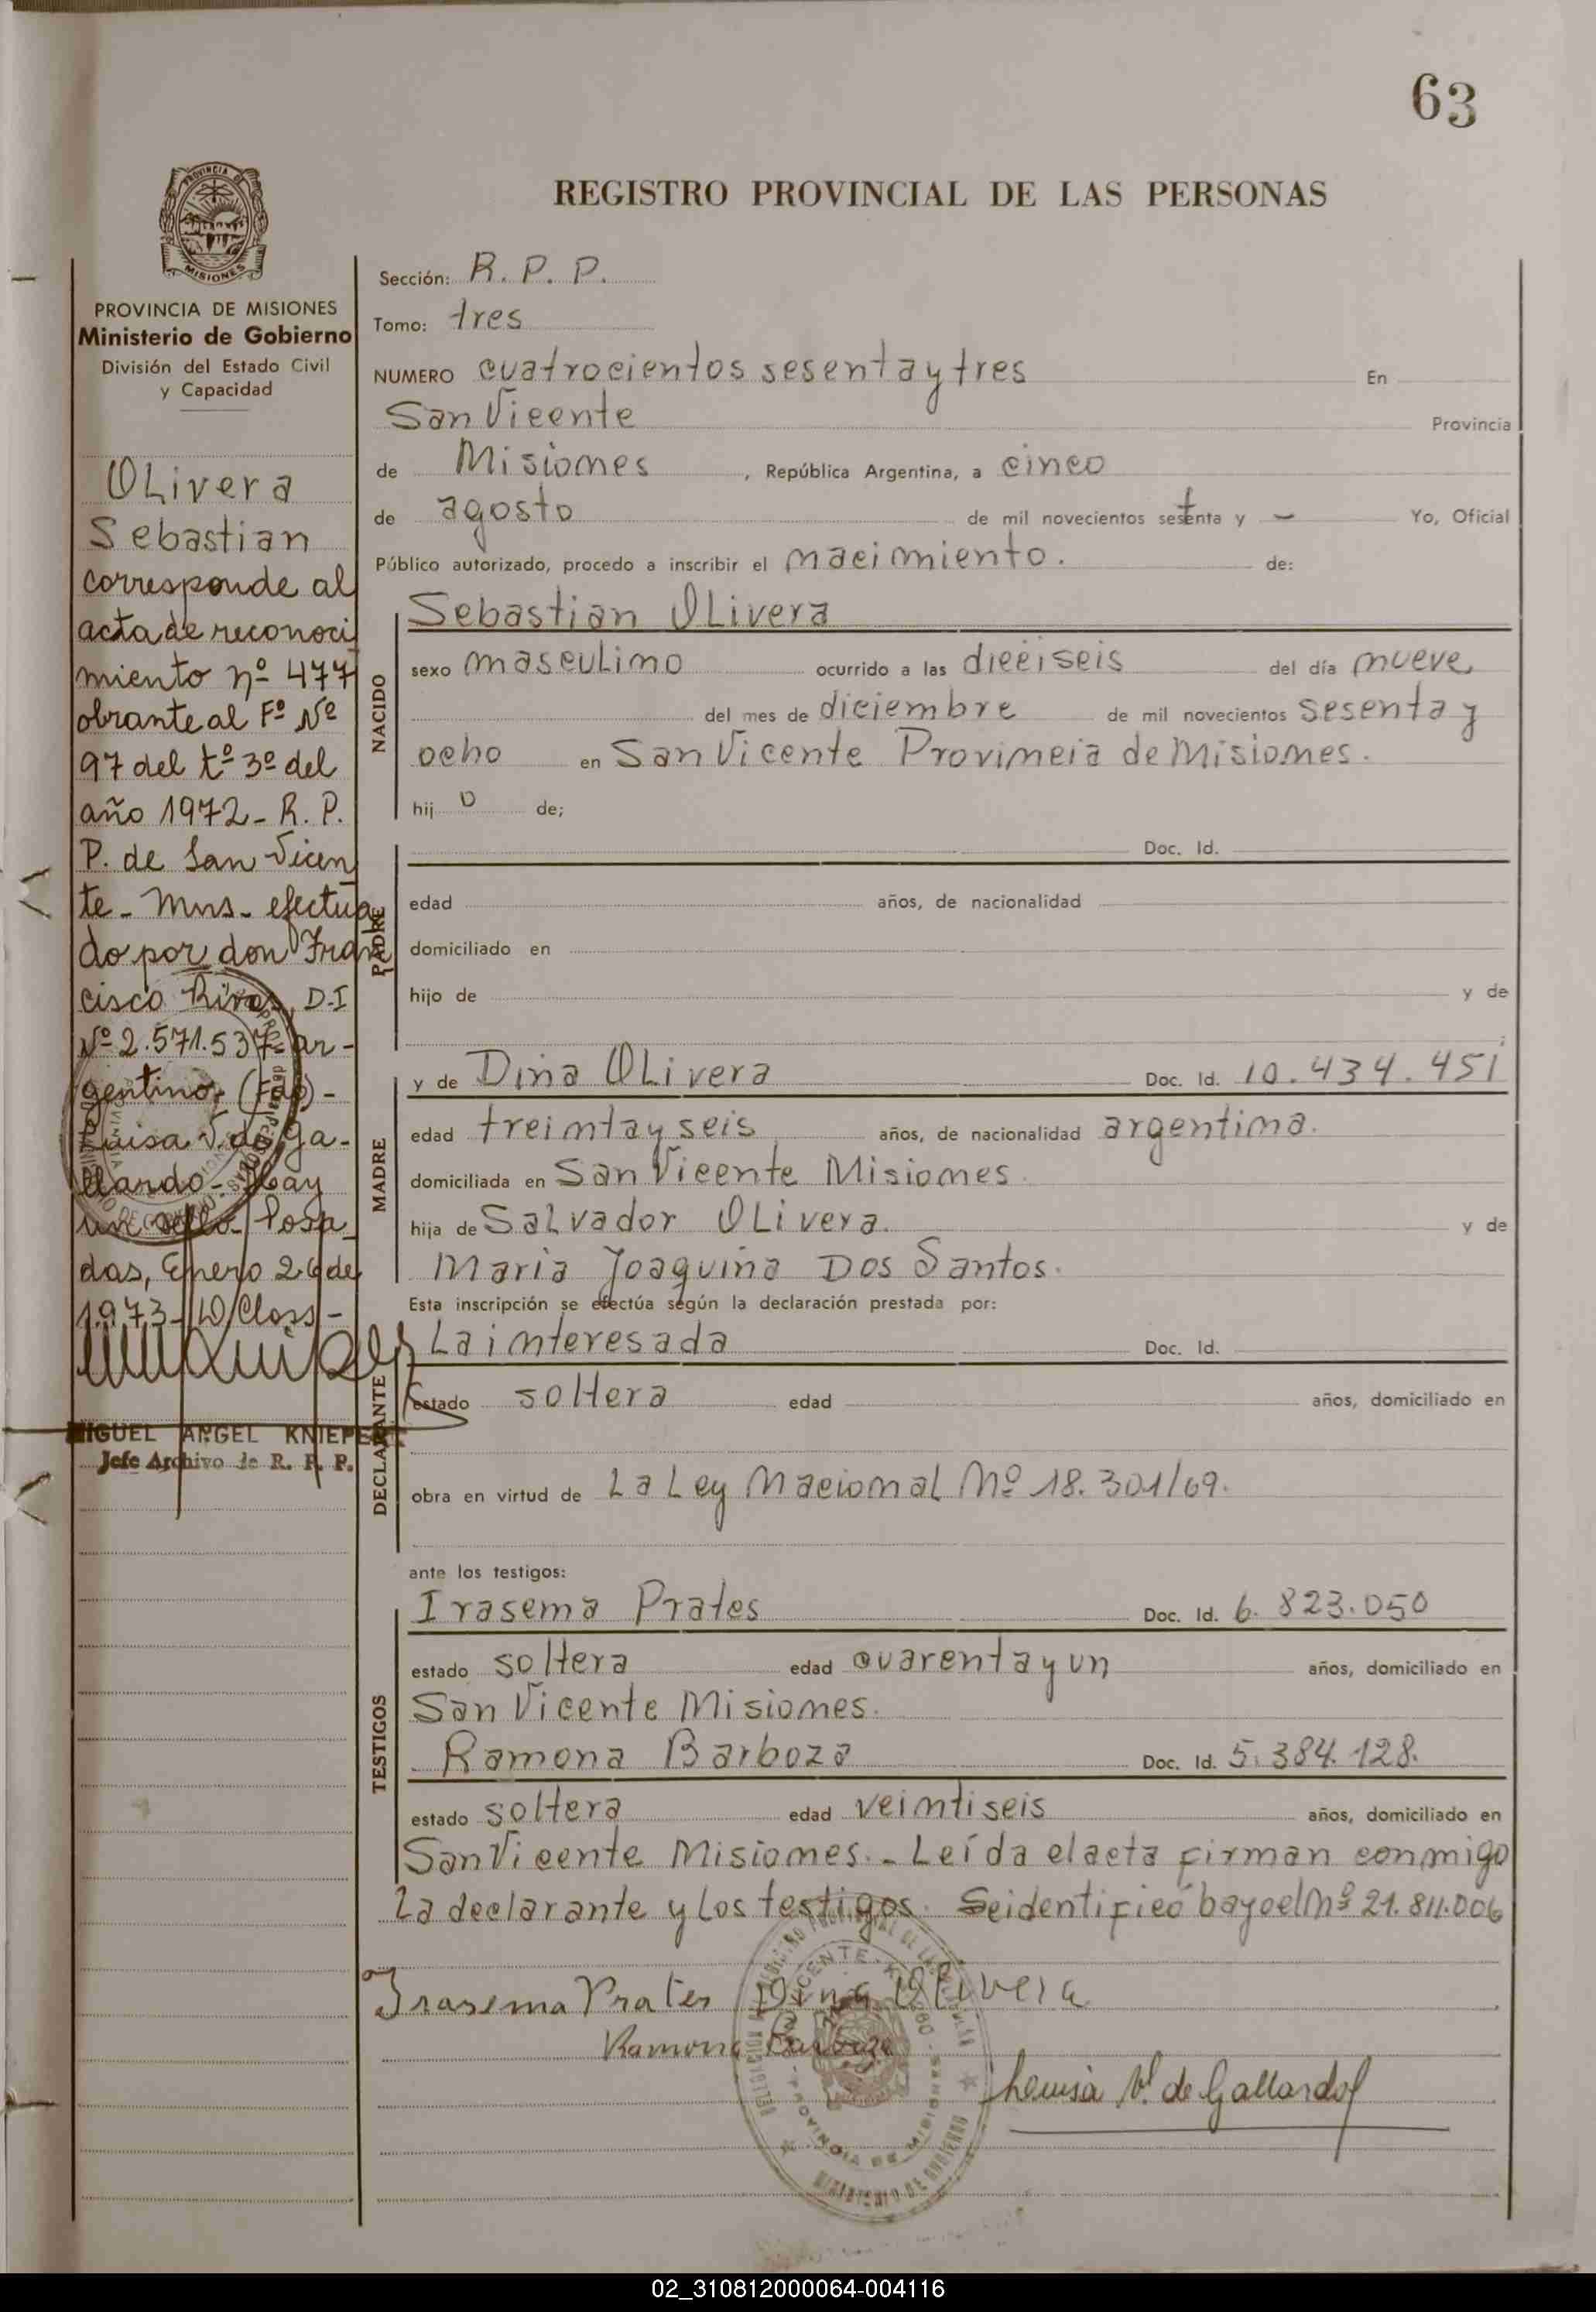 63
PROVINCIA DE
MISIONES
REGISTRO PROVINCIAL DE LAS PERSONAS
PROVINCIA DE MISIONES
Ministerio de Gobierno
División del Estado Civil
y Capacidad
OLivera
Sebastian
corresponde al
acta de reconoci
miento nº 477
obrante al Fº Nº
97 del tº 3º del
año 1972 - R. P.
P. de San Vicen
te - Mns - efectua
do por don Fran
cisco Rivas, D.I
Nº 2.571.537 - ar -
gentino, (Fdo) -
Luisa V. de Ga -
llardo - Hay
un sello - Posa
das, Enero 26 de
1.973 - W Closs -
MIGUEL ANGEL KNIEPERT
Jefe Archivo de R. P. P.
Sección: R. P. P.
Tomo: tres
NUMERO cuatrocientos sesenta y tres En
San Vicente Provincia
de Misiones , República Argentina, a cinco
de agosto de mil novecientos setenta y - Yo, Oficial
Público autorizado, procedo a inscribir el nacimiento. de:
NACIDO
Sebastian OLivera
sexo mascuLino ocurrido a las dieciseis del día nueve,
del mes de diciembre de mil novecientos sesenta y
ocho en San Vicente Provincia de Misiones.
hij o de;
PADRE
Doc. Id.
edad años, de nacionalidad
domiciliado en
hijo de y de
;
MADRE
y de Dina OLivera Doc. Id. 10.434.451
edad treinta y seis años, de nacionalidad argentina.
domiciliada en San Vicente Misiones
hija de SaLvador OLivera. y de
Maria Joaquina Dos Santos.
Esta inscripción se efectúa según la declaración prestada por:
DECLARANTE
La interesada Doc. Id.
estado soltera edad años, domiciliado en
obra en virtud de La Ley NacionaL Nº 18.301/69.
ante los testigos:
TESTIGOS
Irasema Prates Doc. Id. 6.823.050
estado soltera edad cuarenta y un años, domiciliado en
San Vicente Misiones.
Ramona Barboza Doc. Id. 5.384.128.
estado soltera edad veintiseis años, domiciliado en
San Vicente Misiones. - Leída el acta firman conmigo
La declarante y Los testigos. Se identificó bayo el Nº 21.811.006
Irasema Prates Dina Olivera
Ramona Barboza
Luisa V. de Gallardo
02_310812000064-004116